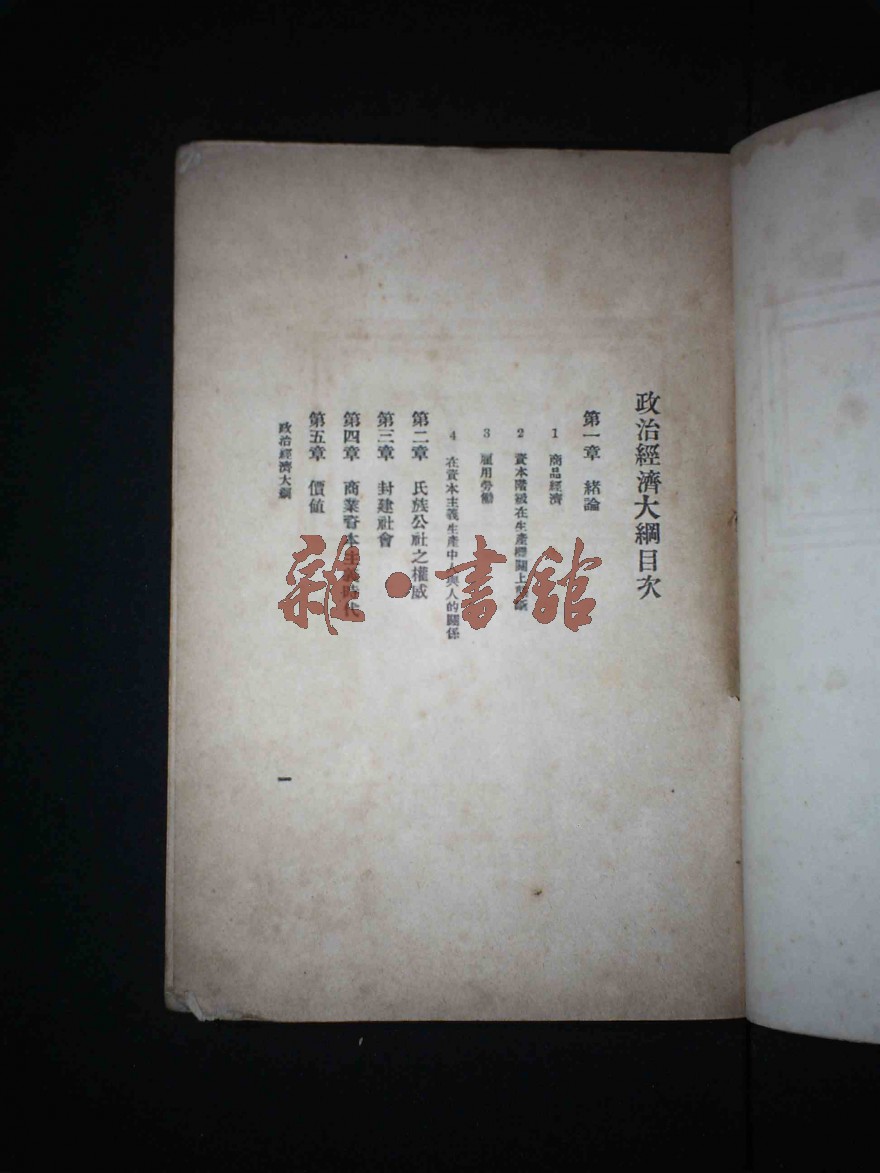 政治經濟大綱目次
第一章 緒論
1 商品經濟
2 資本階級在生產機關上
3 雇用勞働
4 在資本主義生產中人與人的關係
第二章 氏族公社之權威
第三章 封建社會
第四章 商業資本主義時代
第五章 價値
政治經濟大綱
一
雜·書舘